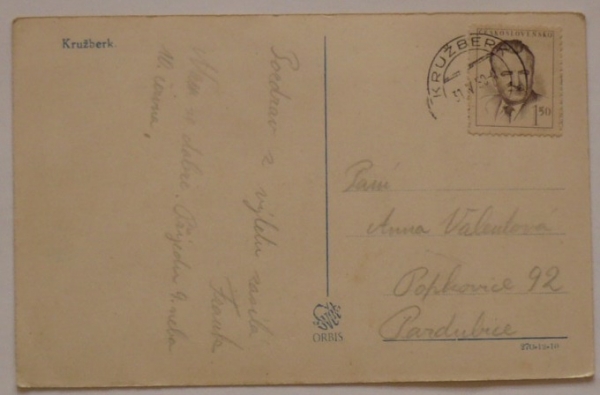 Kružberk.
Pozdrav z výletu zasílá
Franta.
Mám se dobře. Přijedu 9. nebo
10. června,
ČESKOSLOVENSKO
1 50
KRUŽBERK
Paní
Anna Valentová
Popkovice 92
Pardubice
ORBIS